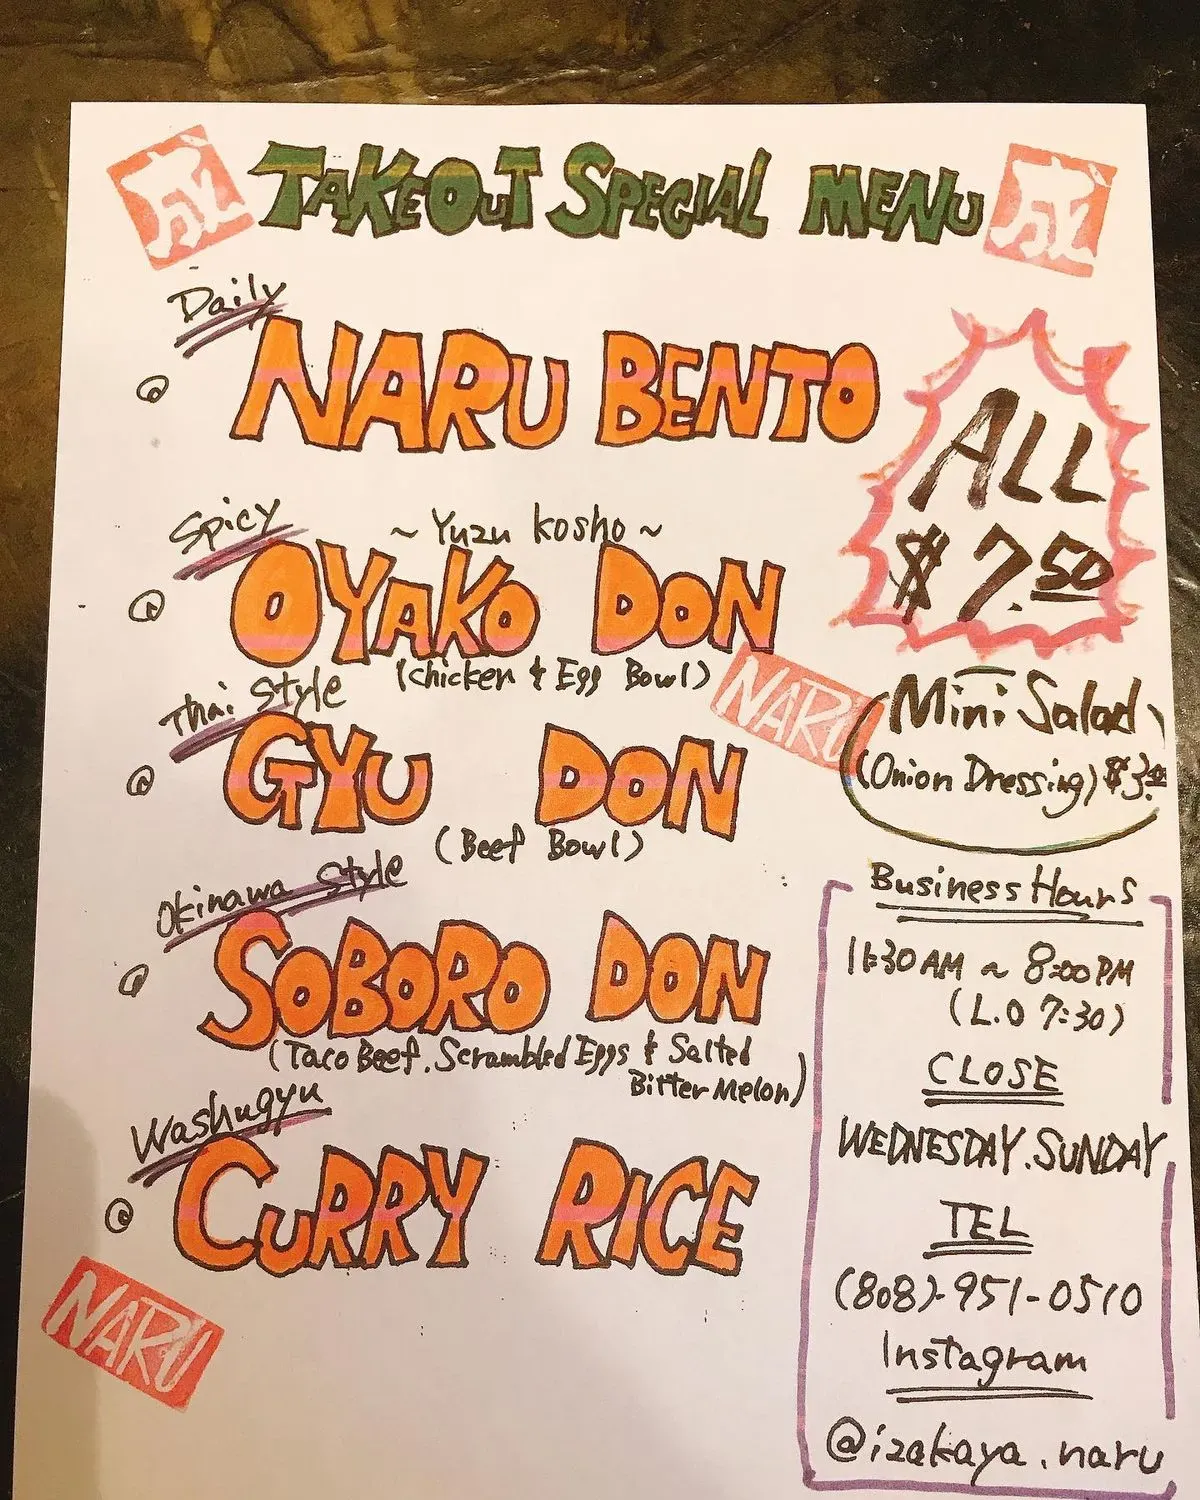 成 TAKEOUT SPECIAL MENU 成
Daily
NARU BENTO
ALL
$7.50
Spicy
~ Yuzu Kosho ~
OYAKO DON
(Chicken & Egg Bowl)
NARU
Mini Salad
(Onion Dressing) $3.
Thai Style
GYU DON
(Beef Bowl)
Okinawa Style
SOBORO DON
(Taco Beef. Scrambled Eggs & Salted
Bitter Melon)
Washugyu
CURRY RICE
NARU
Business Hours
11:30AM ~ 8:00PM
(L.O 7:30)
CLOSE
WEDNESDAY.SUNDAY
TEL
(808)-951-0510
Instagram
@izakaya.naru